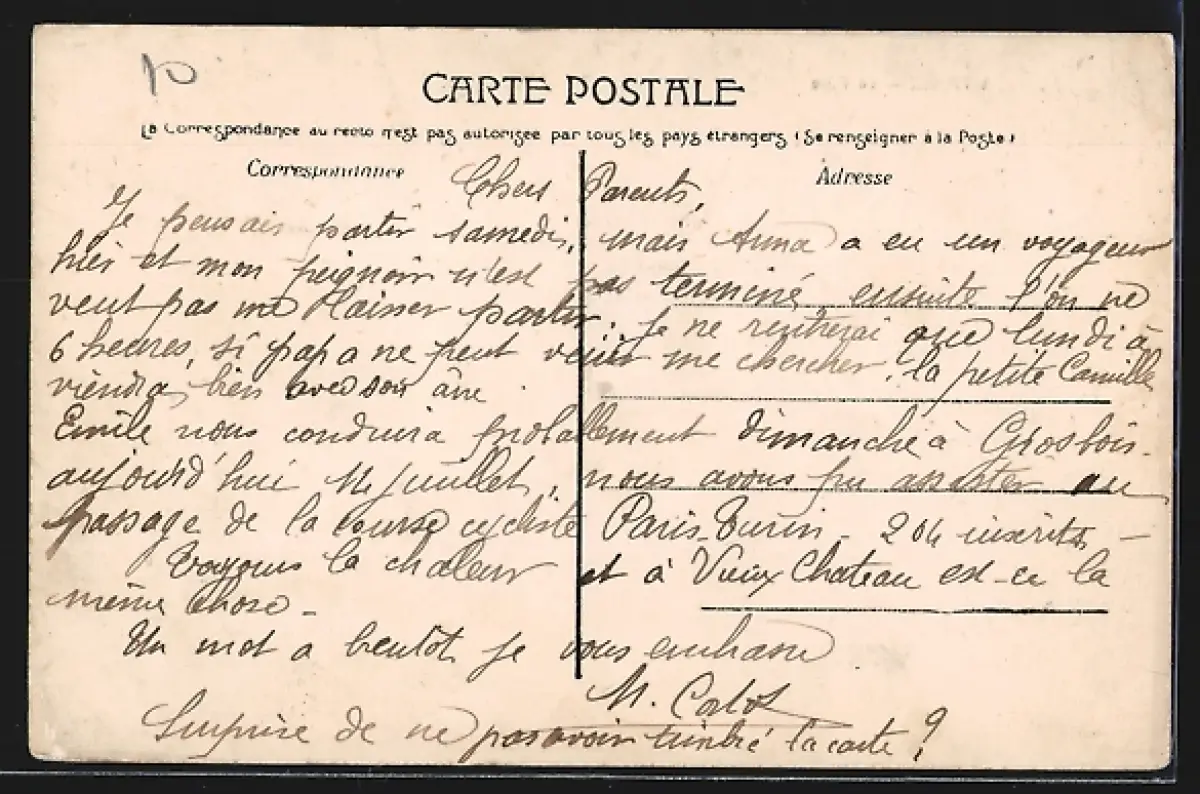 CARTE POSTALE
La Correspondance au recto n'est pas autorisée par tous les pays étrangers (Se renseigner à la Poste)
Correspondance
Adresse
Chers Parents,
Je pensais partir samedi, mais Anna a eu un voyageur
hier et mon peignoir n'est pas terminé ensuite l'on ne
veut pas me laisser partir. Je ne rentrerai que lundi à
6 heures, si papa ne peut venir me chercher, la petite Camille
viendra bien avec son âne
Emile nous conduira probablement dimanche à Grosbois.
aujourd'hui 14 juillet, nous avons pu assister au
passage de la course cycliste Paris-Turin - 204 inscrits -
la chaleur et à Vieux Chateau est-ce la
même chose -
Un mot a bientôt je vous embrasse
M.
Surprise de ne pas avoir timbré la carte ?